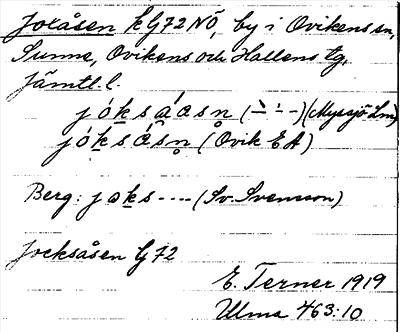 Joxåsen k G72NÖ, by i Ovikens sn,
Sunne, Ovikens och Hallens tg,
Jämtl. l.
j ó k s á̂ a s n̥ (– ̀ – ́ –) (Myssjö Lm)
j ó k s á̂ s n̥ (Ovik E A)
Berg: j o k s ---- (Sv. Svensson)
Jocksåsen G 72
E. Terner 1919
Ulma 463:10